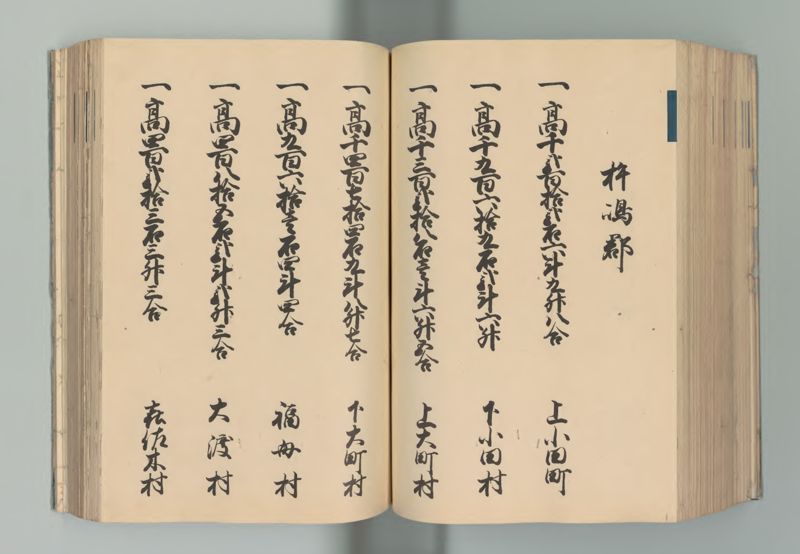 杵嶋郡
一高千弐百拾弐石六斗九升八合 上小田町
一高千九百六拾九石弐斗六升 下小田村
一高千三百弐拾八石壱斗六升五合 上大町村
一高千四百七拾四石九斗八升七合 下大町村
一高九百六拾壱石四斗四合 福母村
一高四百八拾五石弐斗弐升三合 大渡村
一高四百弐拾三石三升三合 喜佐木村